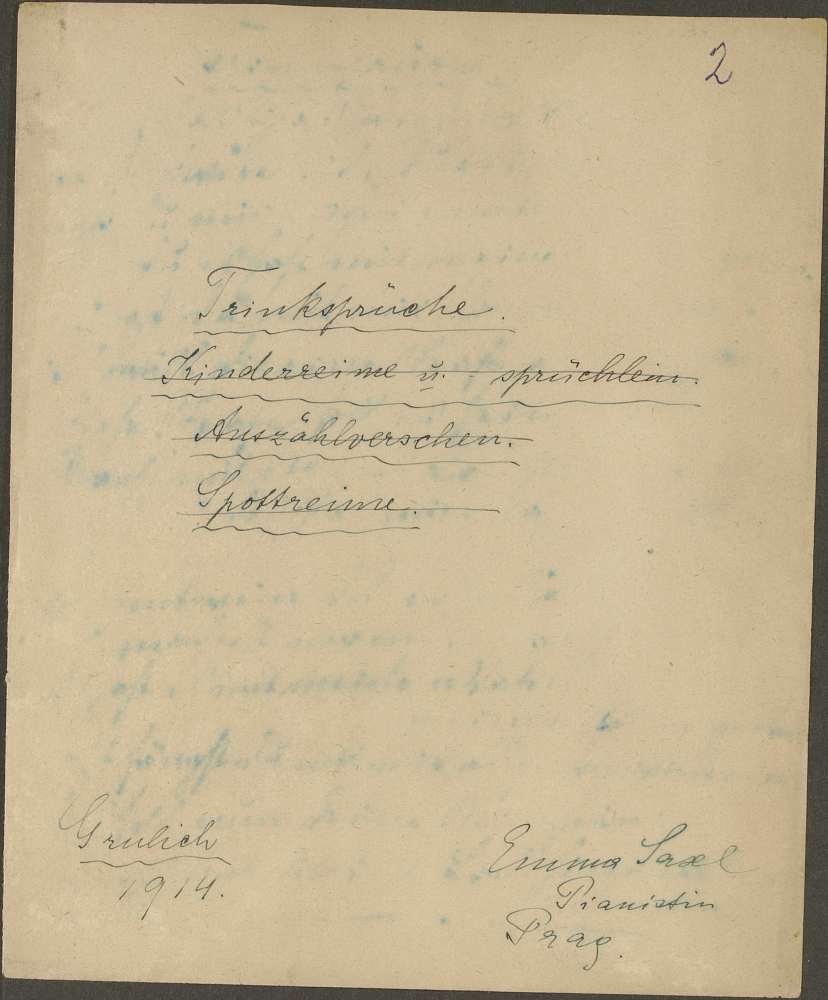 2
Trinksprüche.
Kinderreime u. -sprüchlein.
Auszählverschen.
Spottreime.
Grulich
1914.
Emma Saxel
Pianistin
Prag.